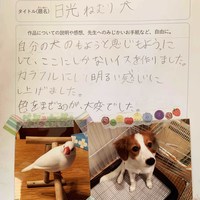 タイトル(題名) 日光ねむり犬
作品についての説明や感想、先生へのみじかいお手紙など、自由に。
自分の犬のもようと感じもようにし
て、ここにしかないイスを作りました。
カラフルにし、明るい感じに
し上げました。
色をまぜるのが、大変でした。